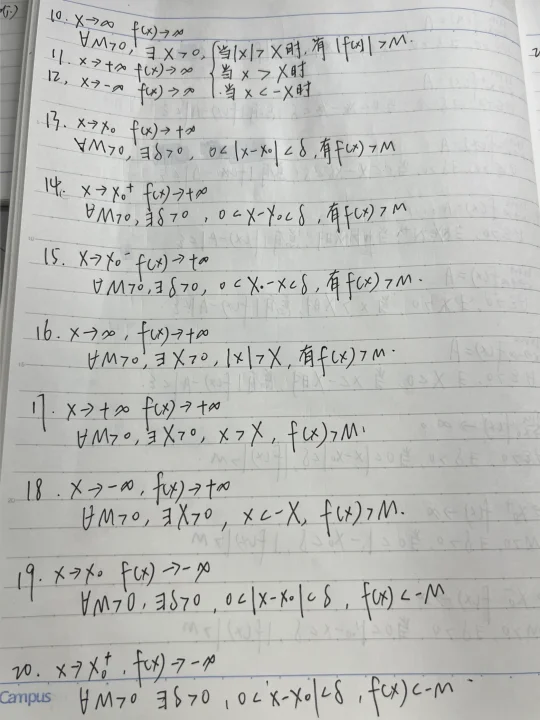 10. x→∞ f(x)→∞
∀M>0, ∃X>0, {当|x|>X时, 有|f(x)|>M.
11. x→+∞ f(x)→∞ 当x>X时
12. x→-∞ f(x)→∞ 当x<-X时
13. x→x₀ f(x)→+∞
∀M>0, ∃δ>0, 0<|x-x₀|<δ, 有f(x)>M
14. x→x₀⁺ f(x)→+∞
∀M>0, ∃δ>0, 0<x-x₀<δ, 有f(x)>M
15. x→x₀⁻ f(x)→+∞
∀M>0, ∃δ>0, 0<x₀-x<δ, 有f(x)>M.
16. x→∞, f(x)→+∞
∀M>0, ∃X>0, |x|>X, 有f(x)>M.
17. x→+∞ f(x)→+∞
∀M>0, ∃X>0, x>X, f(x)>M.
18. x→-∞, f(x)→+∞
∀M>0, ∃X>0, x<-X, f(x)>M.
19. x→x₀ f(x)→-∞
∀M>0, ∃δ>0, 0<|x-x₀|<δ, f(x)<-M
20. x→x₀⁺, f(x)→-∞
Campus
∀M>0 ∃δ>0, 0<x-x₀|<δ, f(x)<-M.